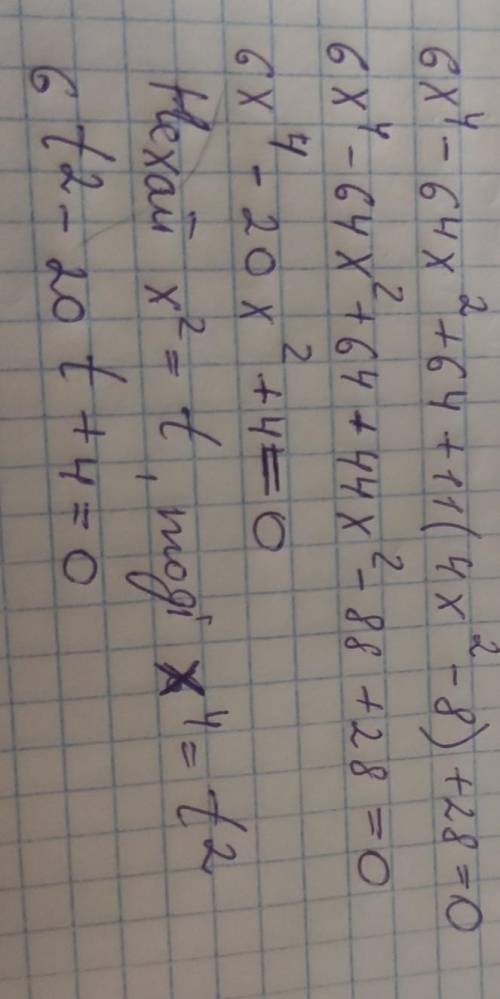 6x⁴ - 64x² + 64 + 11(4x² - 8) + 28 = 0
6x⁴ - 64x² + 64 + 44x² - 88 + 28 = 0
6x⁴ - 20x² + 4 = 0
Нехай x² = t, тоді x⁴ = t2
6t2 - 20t + 4 = 0